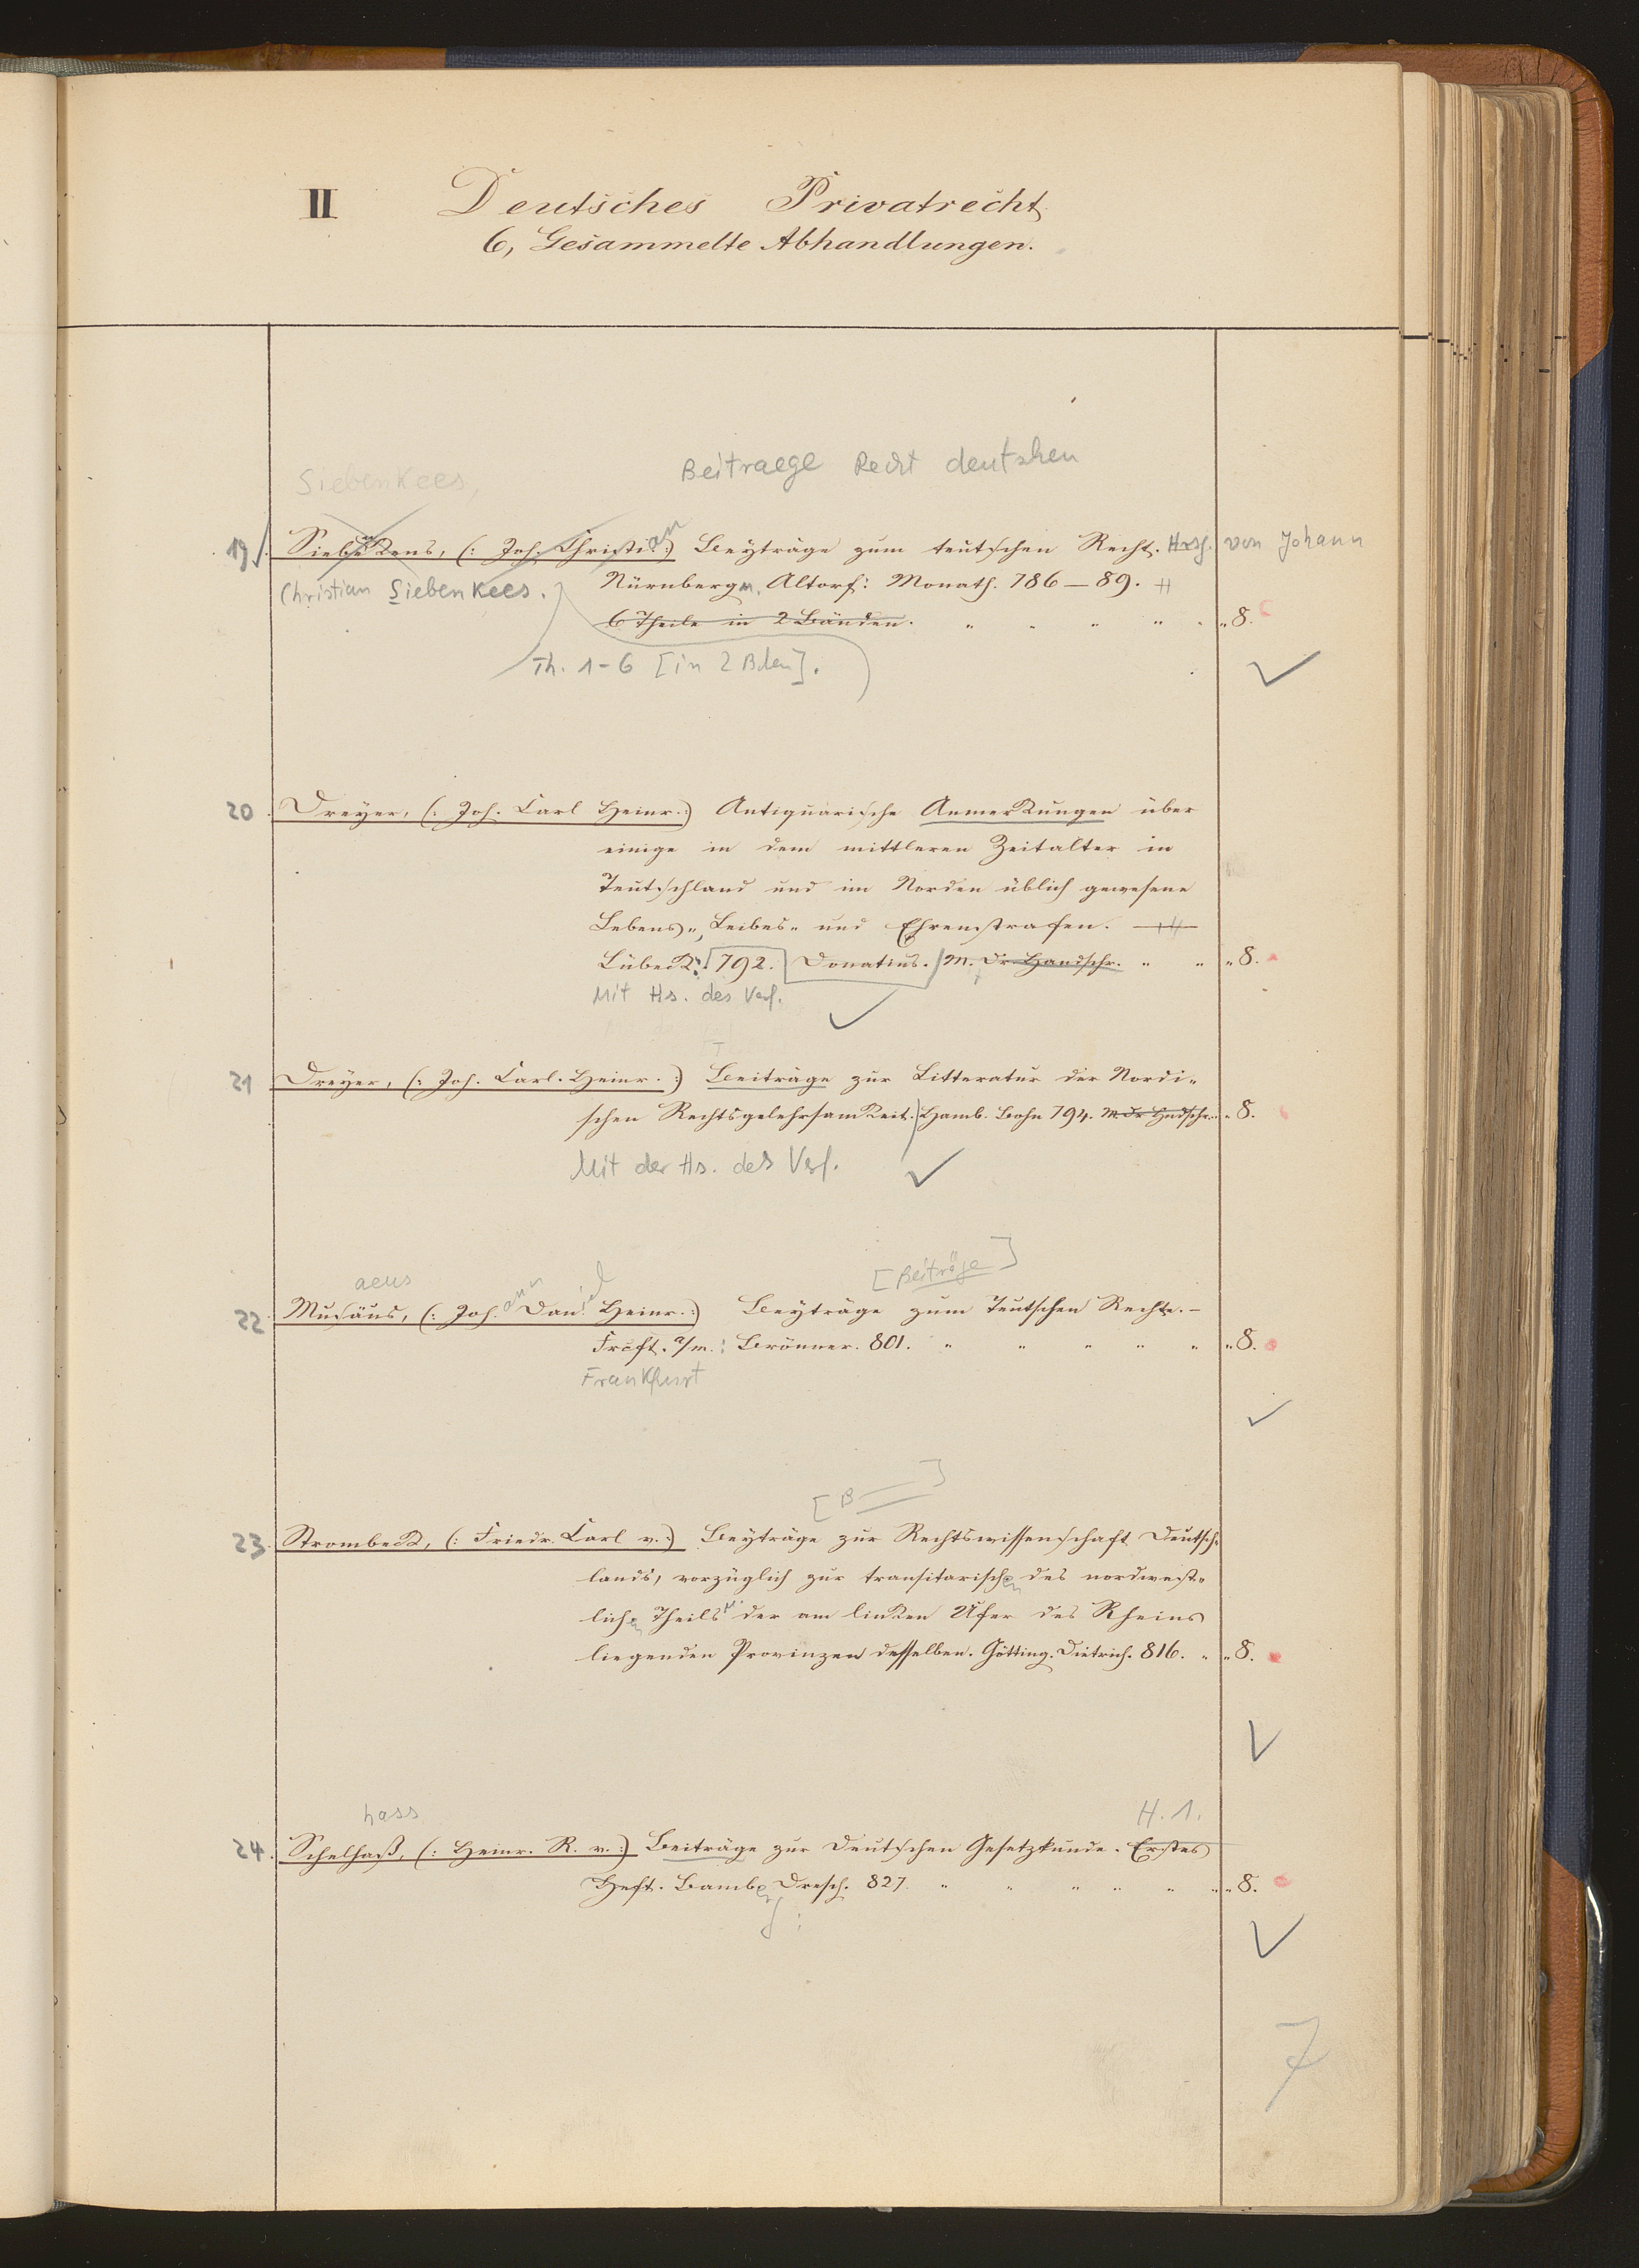 II Deutsches Privatrecht
6, Gesammelte Abhandlungen.
Beitraege Recht deutschen
Siebenkees,
19. Siebenkens, (: Joh. Christian :) Beyträge zum teutschen Recht. Hrsg. von Johann
Christian Siebenkees. Nürnberg u. Altorf: Monath. 786 — 89.
6 Theile in 2 Bänden. " " " " " 8.
Th. 1-6 [in 2 Bden].
20. Dreyer, (: Joh. Carl Heinr. :) Antiquarische Anmerkungen über
einige in dem mittleren Zeitalter in
Teutschland und im Norden üblich gewesene
Lebens-, Leibes- und Ehrenstrafen. —
Lübeck: 792. Donatius. M. Dr. Handschr. " " " 8.
Mit Hs. des Verf.
21 Dreyer, (: Joh. Carl. Heinr. :) Beiträge zur Litteratur der Nordi-
schen Rechtsgelehrsamkeit. Hamb. Bohn 794. M. Dr Hndschr. " 8.
Mit der Hs. des Verf.
[Beiträge]
aeus
22. Musäus, (: Joh.ann Dan.iel Heinr. :) Beyträge zum Teutschen Rechte. —
Frcft. a/m.: Brönner. 801. " " " " " " 8.
Frankfurt
[B ]
23. Strombeck, (: Friedr. Carl v. :) Beyträge zur Rechtswissenschaft Deutsch-
lands, vorzüglich zur transitarischen des nordwest-
lichen Theils u. der am linken Ufer des Rheins
liegenden Provinzen desselben. Götting. Dietrich. 816. " " 8.
hass H. 1.
24. Schelhaß, (: Heinr. R. v. :) Beiträge zur Deutschen Gesetzkunde. Erstes
Heft. Bamberg: Dresch. 827. " " " " " " " 8.
7